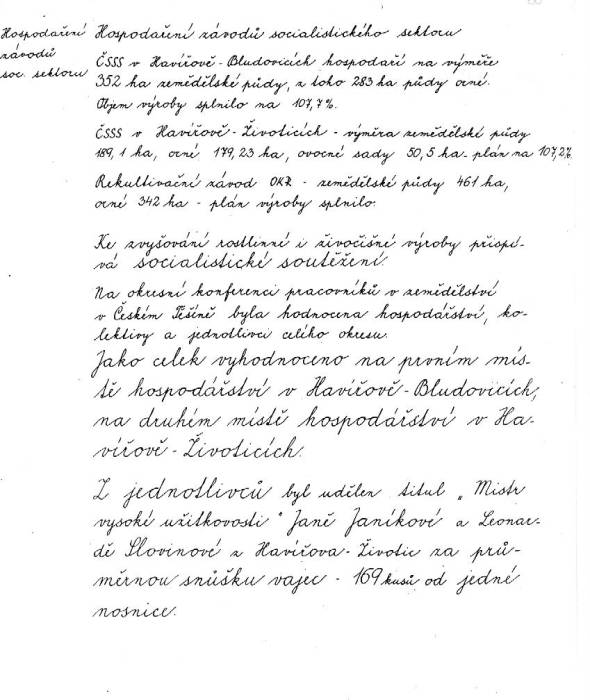 Hospodaření
závodů
soc. sektoru
Hospodaření závodů socialistického sektoru
ČSSS v Havířově-Bludovicích hospodaří na výměře
352 ha zemědělské půdy, z toho 283 ha půdy orné.
Objem výroby splnilo na 107,7%.
ČSSS v Havířově-Životicích - výměra zemědělské půdy
189,1 ha, orné 179,23 ha, ovocné sady 50,5 ha - plán na 107,2%
Rekultivační závod OKR - zemědělské půdy 461 ha,
orné 342 ha - plán výroby splnilo.
Ke zvyšování rostlinné i živočišné výroby přispí-
vá socialistické soutěžení.
Na okresní konferenci pracovníků v zemědělství
v Českém Těšíně byla hodnocena hospodářství, ko-
lektivy a jednotlivci celého okresu.
Jako celek vyhodnoceno na prvním mís-
tě hospodářství v Havířově-Bludovicích,
na druhém místě hospodářství v Ha-
vířově-Životicích.
Z jednotlivců byl udělen titul „Mistr
vysoké užitkovosti" Janě Janíkové a Leonar-
dě Slovinové z Havířova-Životic za prů-
měrnou snůšku vajec - 169 kusů od jedné
nosnice.